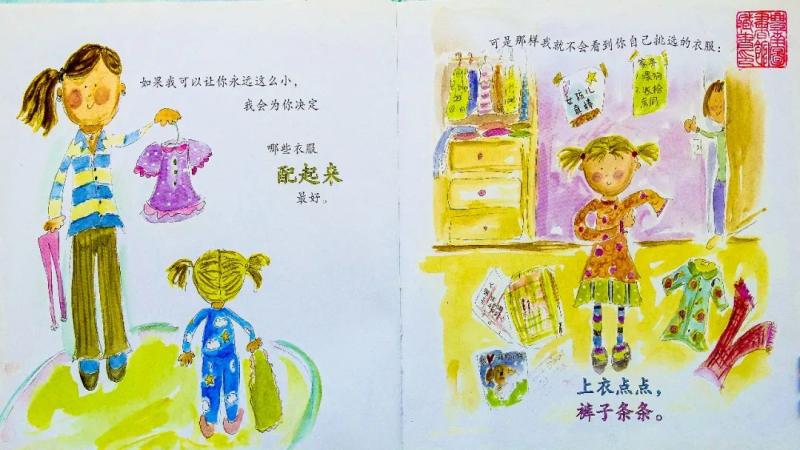 如果我可以让你永远这么小，
我会为你决定
哪些衣服
配起来
最好。
可是那样我就不会看到你自己挑选的衣服：
女孩儿
真棒
上衣点点，
裤子条条。